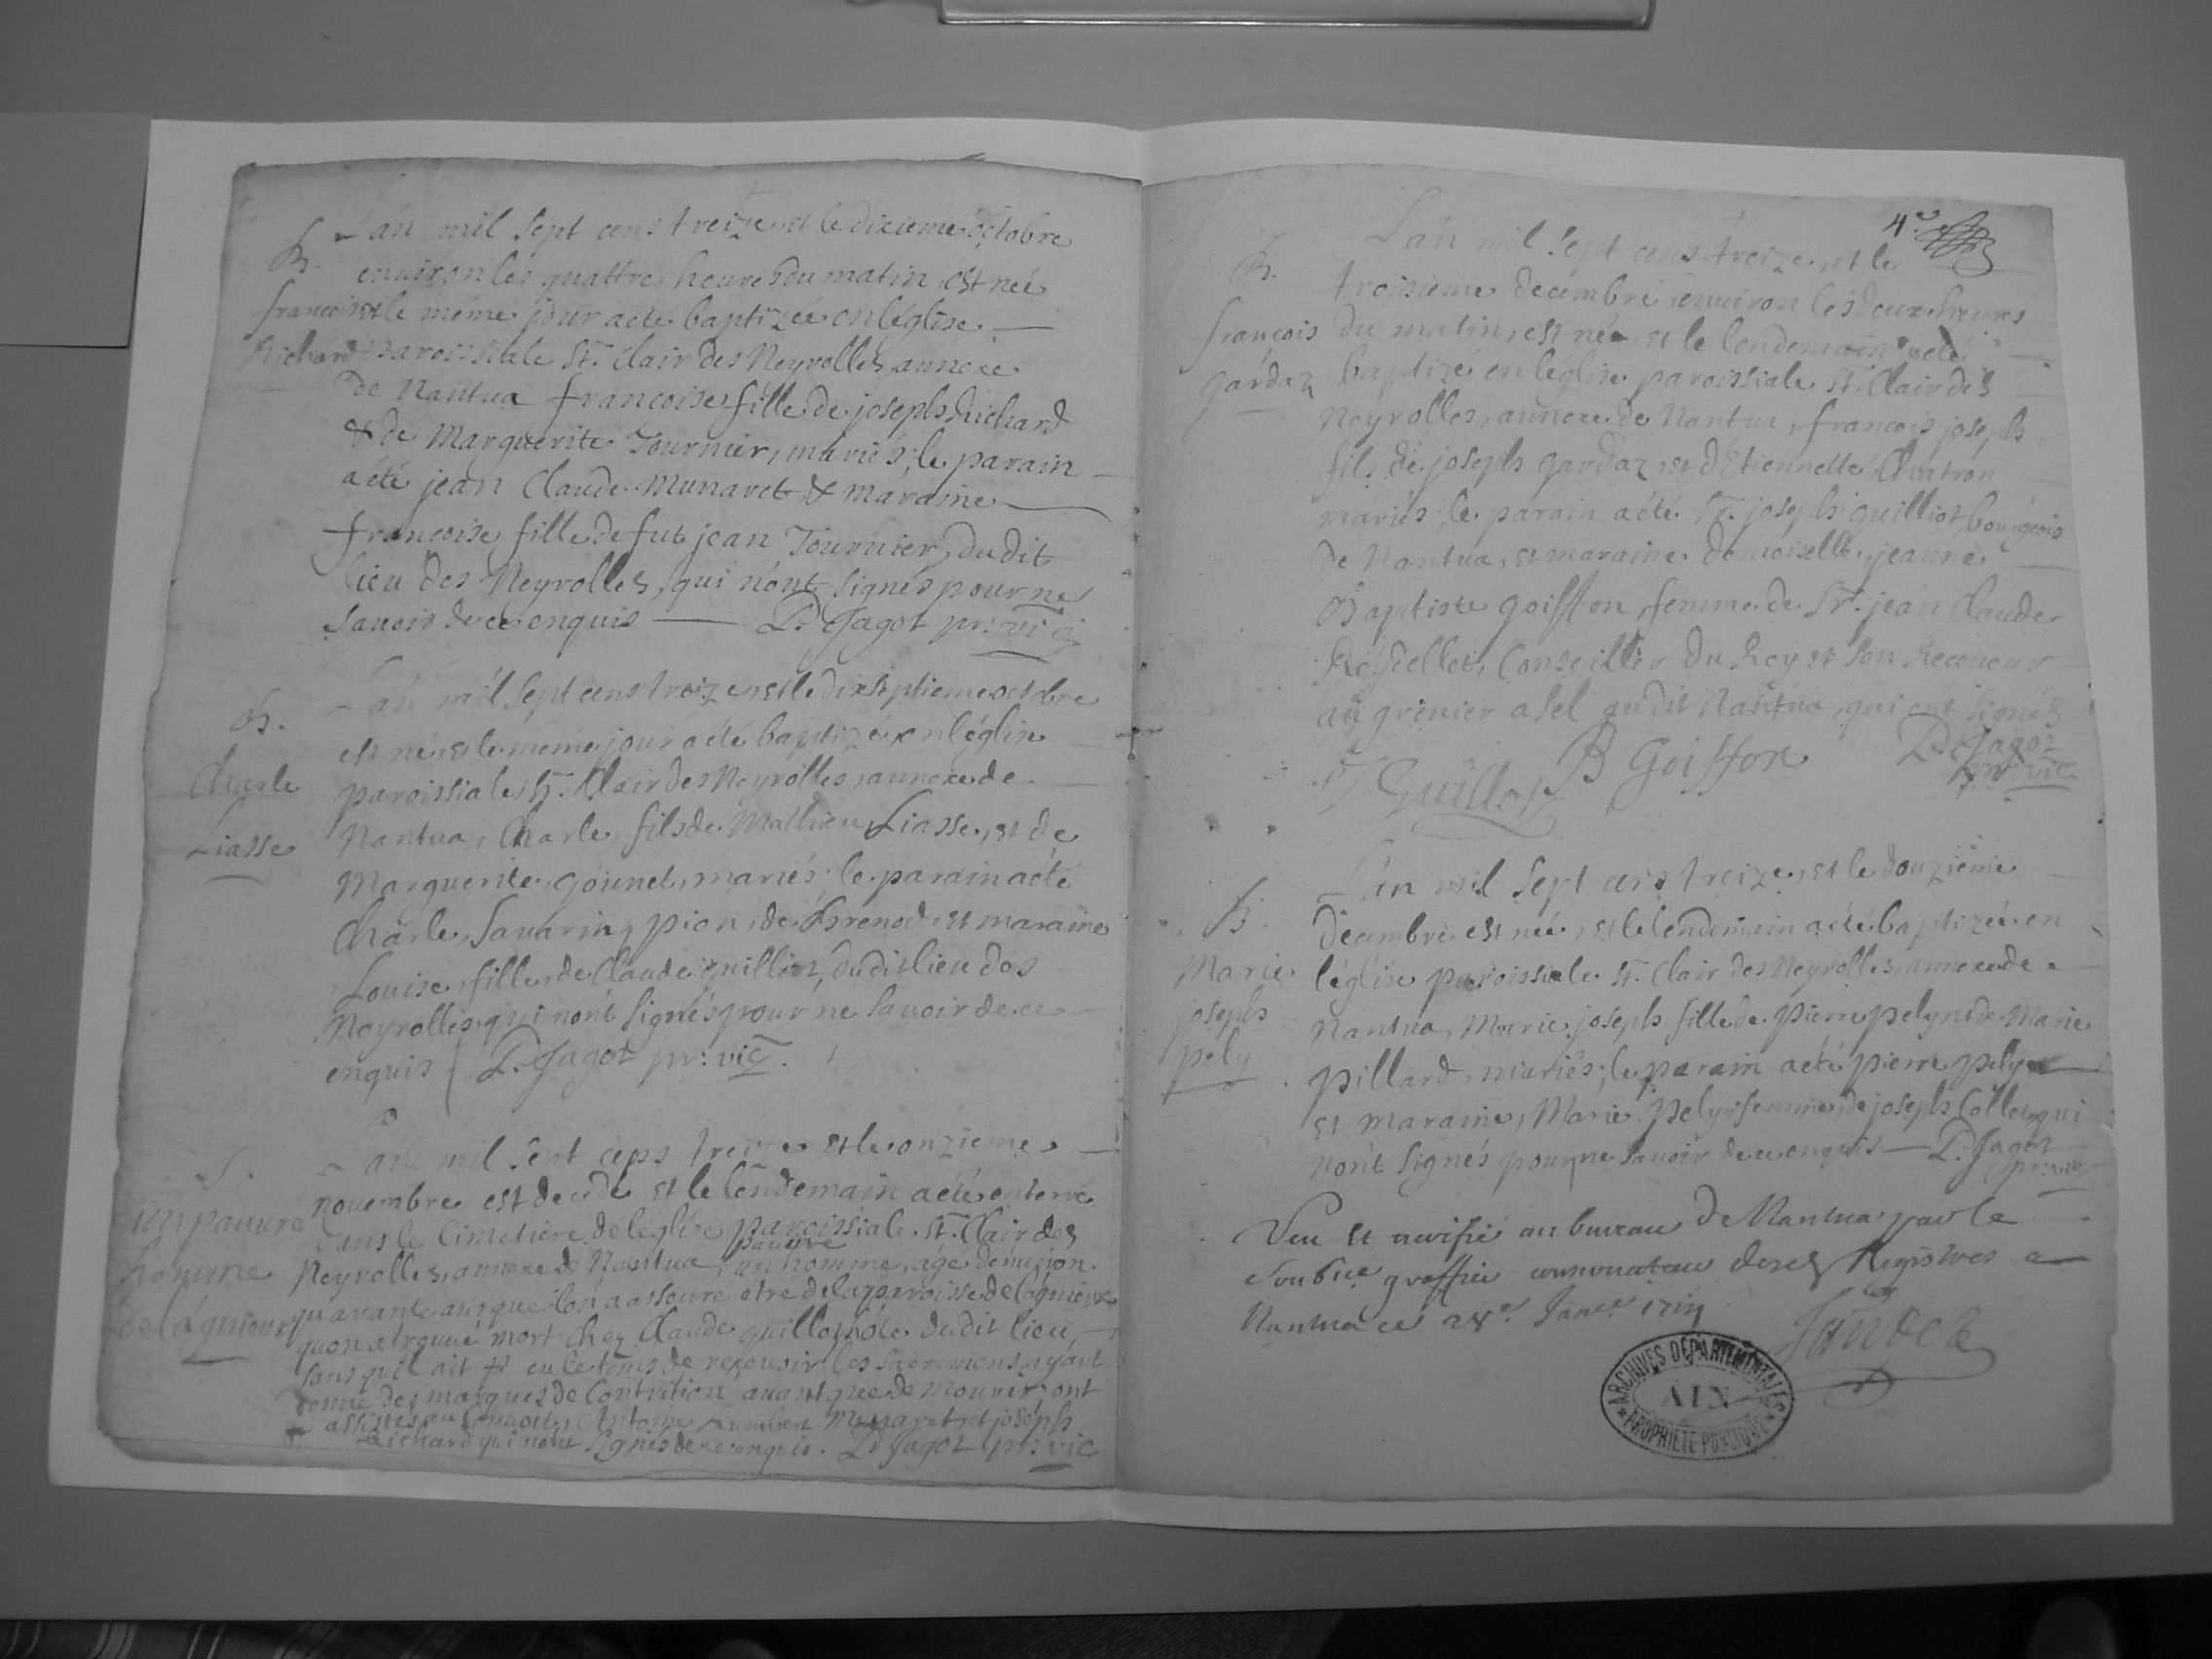 B.
francoise
Richard
L'an mil sept cens treize, et le dixieme octobre
environ les quattre heures du matin, est née
et le même jour a eté baptizée en léglise
paroissiale St. Clair des Neyrolles, annexe
de Nantua francoise fille de joseph Richard
& de Marguerite Tournier, mariés; le parain
a été jean Claude Munaret & maraine
francoise fille de fut jean Tournier, du dit
lieu des Neyrolles, qui n'ont signés pour ne
savoir de ce enquis P. Jagot pr: vic
B.
Charle
Liasse
L'an mil sept cens treize, et le dixseptieme octobre
est né, et le meme jour a eté baptizé en léglise
paroissiale St. Clair des Neyrolles, annexe de
Nantua, Charle, fils de Mathieu Liasse, et de
Marguerite goinet, mariés; le parain a eté
Charle, Savarin, pion, de Brenod, et maraine
Louise, fille, de Claude guilliot, du dit lieu des
Neyrolles, qui n'ont signés pour ne savoir de ce
enquis P. Jagot pr: vic.
S.
un pauvre
homme
de lagnieux
L'an mil sept cens treize et le onzieme
novembre est decedé et le lendemain a eté enterré
dans le Cimetiere de léglise paroissiale St. Clair des
pauvre
Neyrolles, annexe de Nantua, un homme, agé denviron
quarante ans que l'on a asseuré etre de la paroisse de lagnieux
qu'on a trouvé mort chez Claude guillot hôte dudit lieu,
sans qu'il ait eu le tems de recevoir les sacremens, ayant
donné des marques de Contrition avant que de mourir; ont
assistés au convoit, Antoine humbert Munaret et joseph
Richard qui n'ont signés de ce enquis. P. Jagot pr: vic
4e
B.
francois
gardaz
L'an mil sept cens treize, et le
troisieme decembre environ les deux heures
du matin, est né et le lendemain a eté
baptizé en léglise paroissiale St. Clair des
Neyrolles, annexe de Nantua, francois joseph
fils de joseph gardaz et d'Etiennette Chatron
mariés; le parain a eté Sr. joseph guilliot bourgeois
de Nantua, et maraine demoiselle jeanne
Baptiste goiffon femme de Sr. jean Claude
Reydellet, Conseiller du Roy et son Receveur
au grenier a sel audit Nantua, qui ont signés
J Guillot B Goiffon P. Jagot
pr: vic
B.
Marie
joseph
pely
L'an mil sept cens treize, et le douzieme
decembre est née, et le lendemain a eté baptizée en
léglise paroissiale St. Clair des Neyrolles annexe de
Nantua, Marie joseph fille de pierre pely et de Marie
pillard, mariés; le parain a eté pierre pely
et maraine, Marie pely femme de joseph Collet qui
n'ont signés pour ne savoir de ce enquis P. Jagot
pr: vic
Veu et verifié au bureau de Nantua par le
Soubné greffier conservateur desd Registres a
Nantua ce 28e. Janer 1714
Jandet
ARCHIVES DEPARTEMENTALES
AIN
PROPRIETE PUBLIQUE